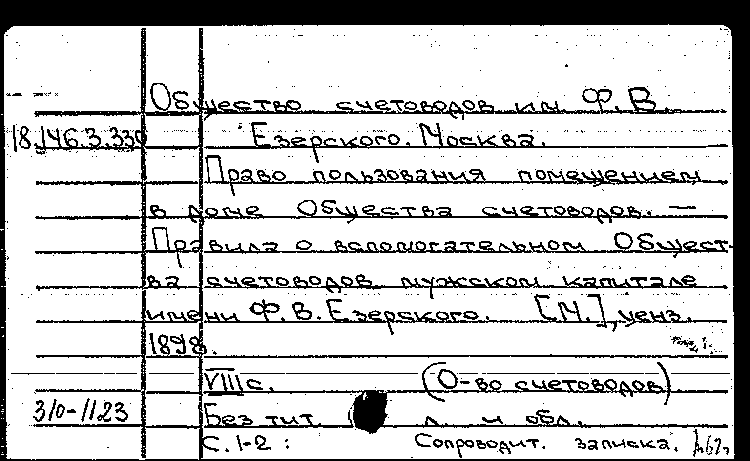 Общество счетоводов им. Ф. В.
18.146.3.330 Езерского. Москва.
Право пользования помещением
в доме Общества счетоводов. —
Правила о вспомогательном Общест-
ва счетоводов мужском капитале
имени Ф. В. Езерского. [М.], ценз.
1898.
VIII с. (О-во счетоводов)
310-1123 Без тит. л. и обл.
С. 1-2: Сопроводит. записка.